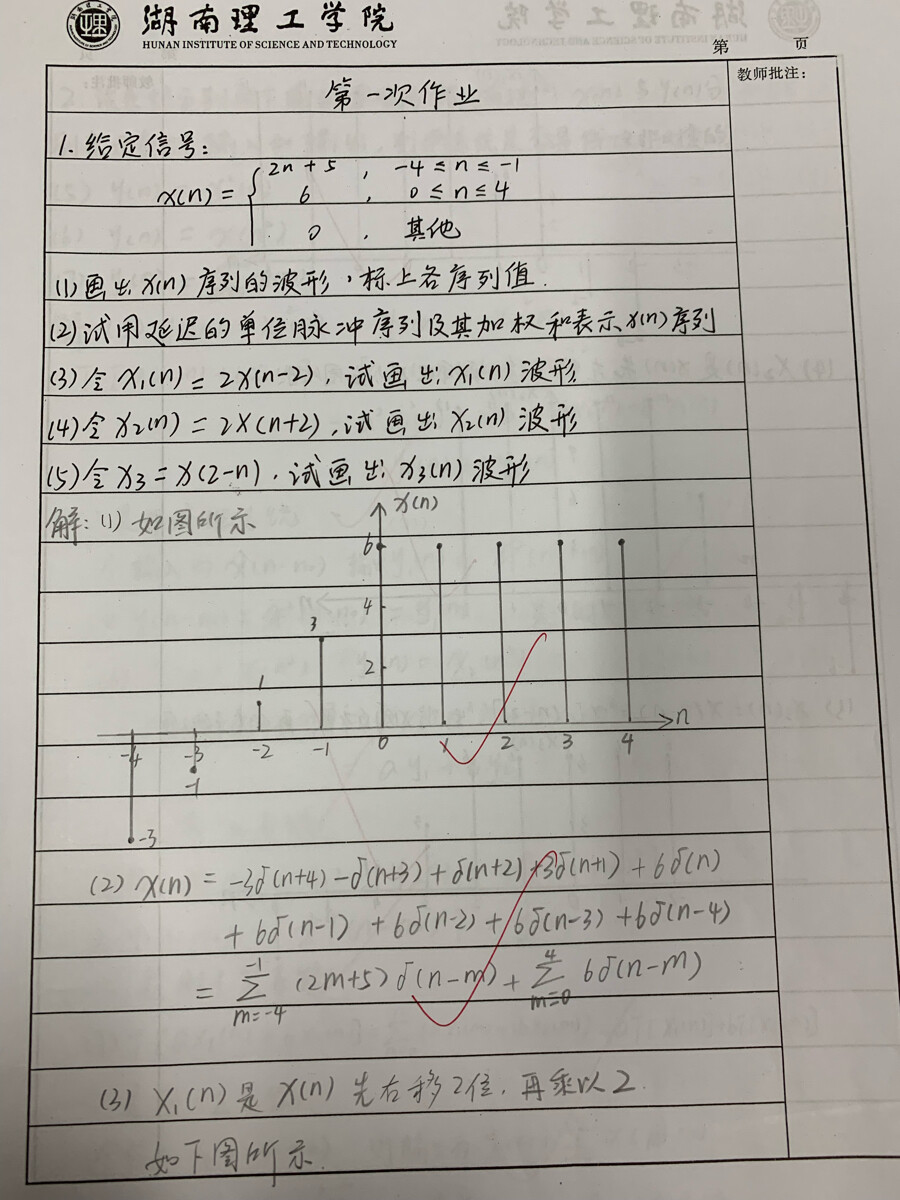 湖南理工学院
HUNAN INSTITUTE OF SCIENCE AND TECHNOLOGY
第 页
教师批注:
第一次作业
1. 给定信号:
x(n) = { 2n+5 , -4 ≤ n ≤ -1
6 , 0 ≤ n ≤ 4
0 , 其他
(1) 画出 x(n) 序列的波形, 标上各序列值.
(2) 试用延迟的单位脉冲序列及其加权和表示 x(n) 序列
(3) 令 x₁(n) = 2x(n-2), 试画出 x₁(n) 波形
(4) 令 x₂(n) = 2x(n+2), 试画出 x₂(n) 波形
(5) 令 x₃ = x(2-n), 试画出 x₃(n) 波形
解: (1) 如图所示
x(n)
6
4
3
2
1
-4 -3 -2 -1 0 1 2 3 4 n
-1
-3
(2) x(n) = -3δ(n+4) - δ(n+3) + δ(n+2) + 3δ(n+1) + 6δ(n)
+ 6δ(n-1) + 6δ(n-2) + 6δ(n-3) + 6δ(n-4)
= ∑_{m=-4}^{-1} (2m+5) δ(n-m) + ∑_{m=0}^{4} 6δ(n-m)
(3) x₁(n) 是 x(n) 先右移2位, 再乘以2.
如下图所示.